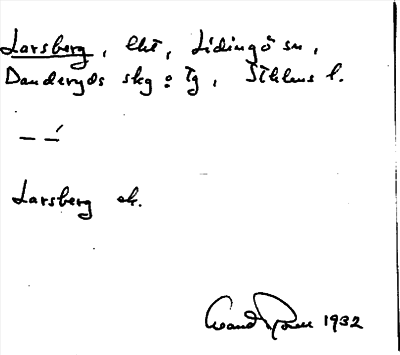 Larsberg, lht, Lidingö sn,
Danderyds skg: tg, Sthlms l.
— —́
Larsberg ek.
1932